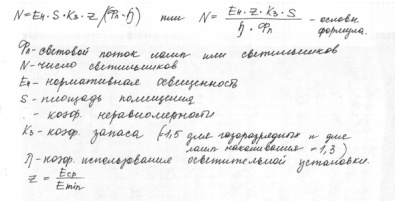 N = Eн · S · Kз · z / (Фл · η) или N = Eн · z · Kз · S / η · Фл - основн. формула.
Фл - световой поток ламп или светильников
N - число светильников
Eн - нормативная освещенность
S - площадь помещения
- коэф. неравномерности
Kз - коэф. запаса (-1,5 для газоразрядных и для
ламп накаливания = 1,3)
η - коэф. использования осветительной установки.
z = Eср / Emin